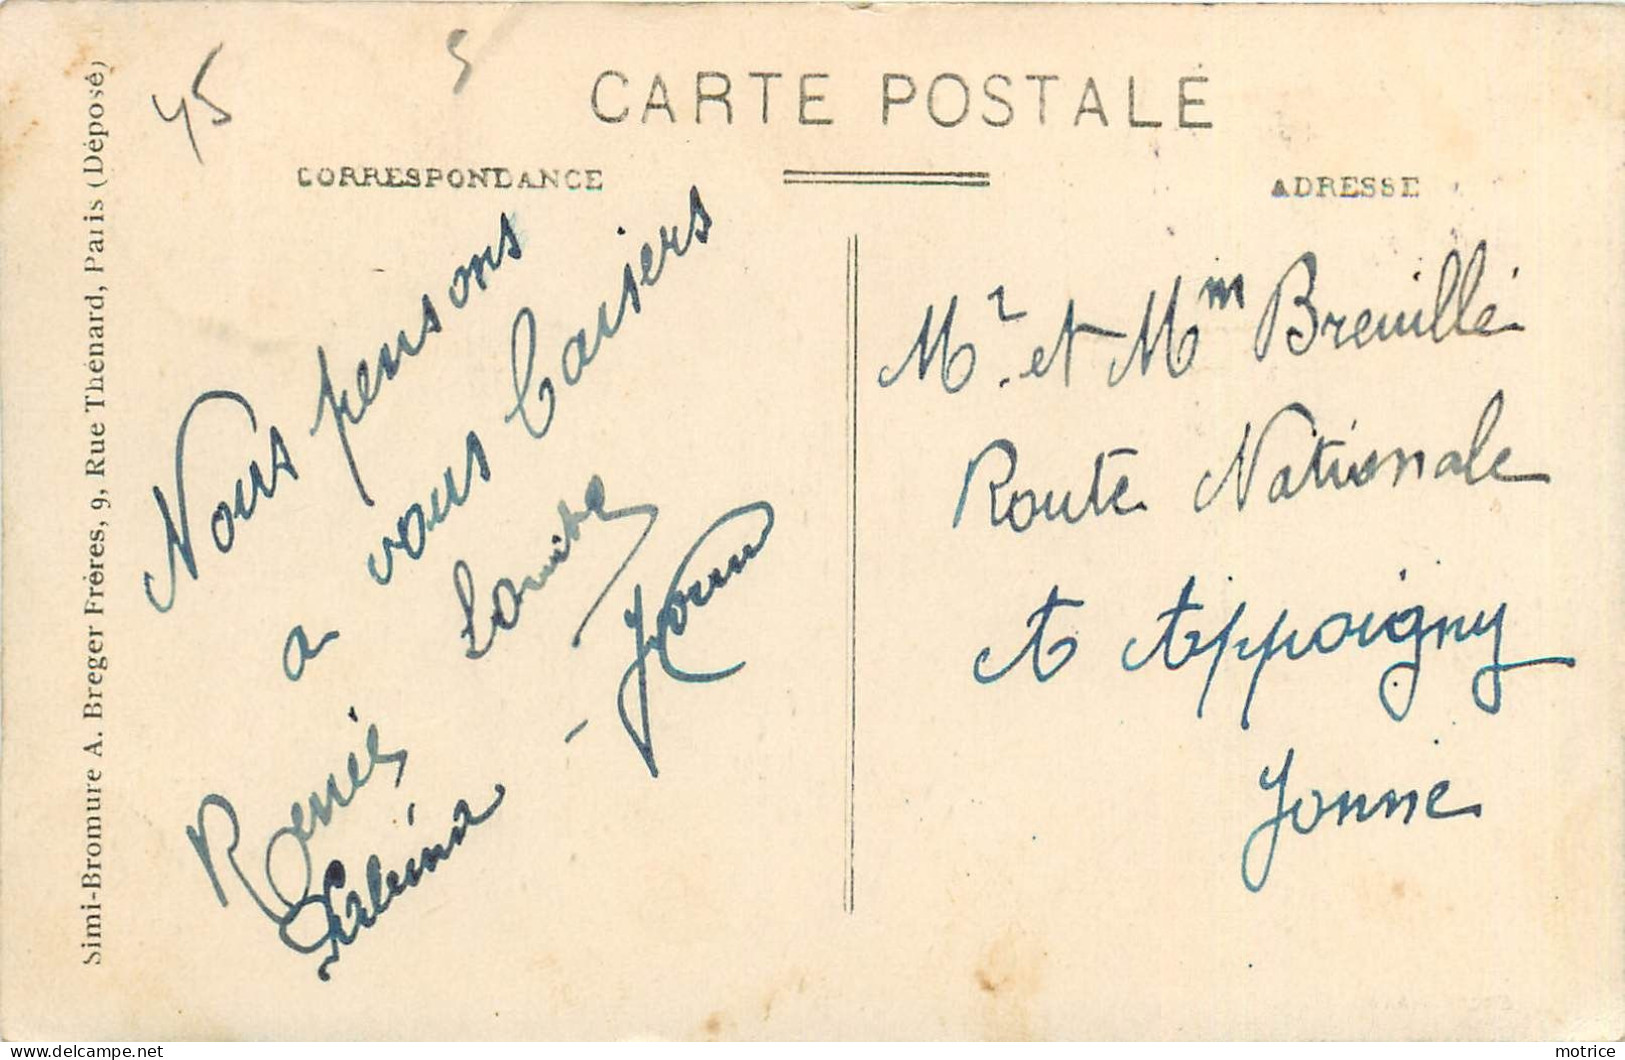 45
5
CARTE POSTALE
CORRESPONDANCE
ADRESSE
Simi-Bromure A. Breger Frères, 9, Rue Thénard, Paris (Déposé)
Nous pensons
a vous baisers
Louise
Renée
Sabina -
Mr. et Mm Breuillé
Route Nationale
A Appoigny
Yonne
motrice